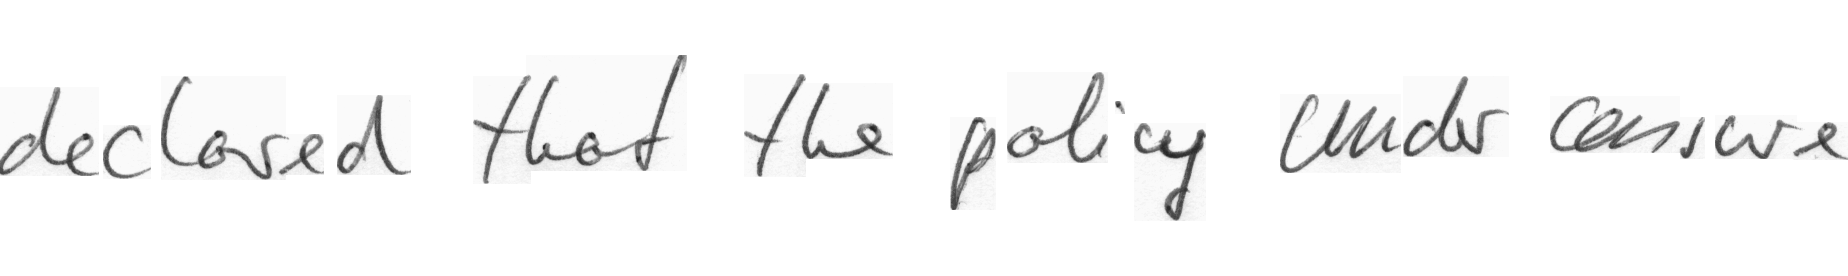 declared that the policy under censure